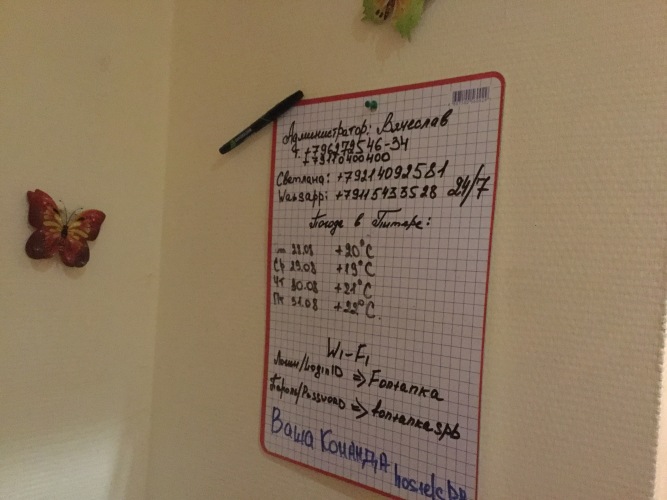 Администратор: Вячеслав
т. +796279546-34
+79110400400
Светлана: +79214092581
Watsapp: +79115433528 24/7
Погода в Питере:
28.08 +20°C
Ср 29.08 +19°C
Чт 30.08 +21°C
Пт 31.08 +22°C
Wi-Fi
Логин/Login ID => Fontanka
Пароль/Password => fontankaspb
Ваша Команда